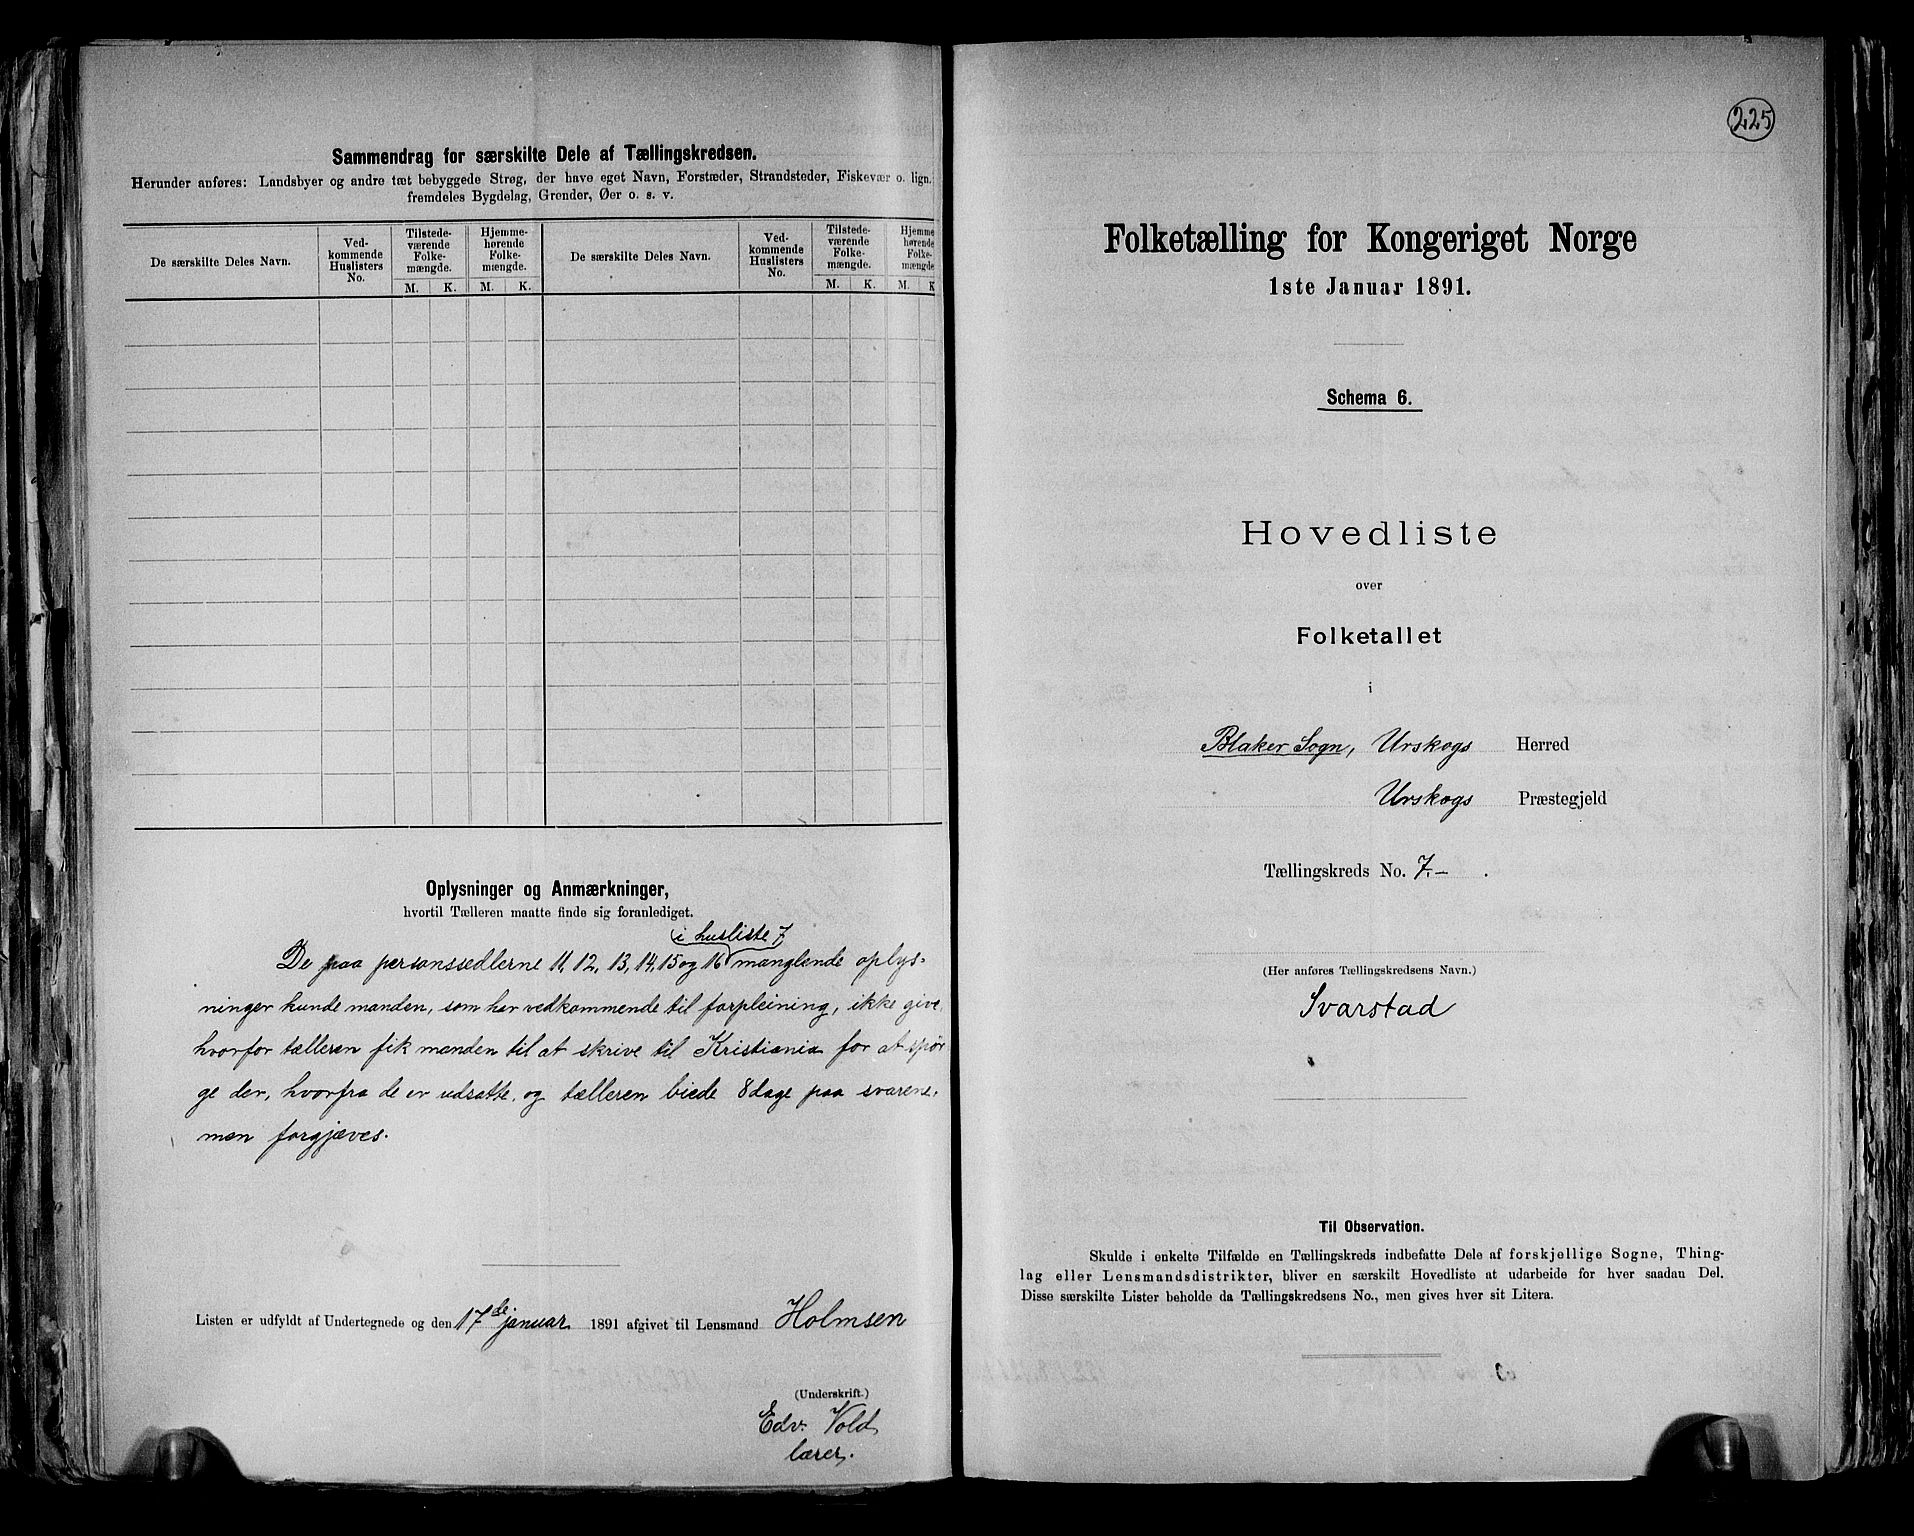 Sammendrag for særskilte Dele af Tællingskredsen.
Herunder anføres: Landsbyer og andre tæt bebyggede Strøg, der have eget Navn, Forstæder, Strandsteder, Fiskevær o. lign.
fremdeles Bygdelag, Grender, Øer o. s. v.
De særskilte Deles Navn. Ved-kommende Huslisters No. Tilstede-værende Folke-mængde. Hjemme-hørende Folke-mængde. De særskilte Deles Navn. Ved-kommende Huslisters No. Tilstede-værende Folke-mængde. Hjemme hørende Folke-mængde
M. K. M. K. M. K. M. K
Oplysninger og Anmærkninger,
hvortil Tælleren maatte finde sig foranlediget.
i husliste 7
De paa personssedlerne 11, 12, 13, 14, 15 og 16 manglende oplys-
ninger kunde manden, som har vedkommende til forpleining, ikke give,
hvorfor tælleren fik manden til at skrive til Kristiania for at spør
ge der, hvorfra de er udsatte, og tælleren biede 8 dage paa svarene,
men forgjæves.
Listen er udfyldt af Undertegnede og den 17de januar 1891 afgivet til Lensmand Holmsen
(Underskrift.)
Edv. Vold
lærer.
225
Folketælling for Kongeriget Norge
1ste Januar 1891.
Schema 6.
Hovedliste
over
Folketallet
i
Blaker Sogn, Urskogs Herred
Urskogs Præstegjeld
Tællingskreds No. 7.-.
(Her anføres Tællingskredsens Navn.)
Svarstad
Til Observation.
Skulde i enkelte Tilfælde en Tællingskreds indbefatte Dele af forskjellige Sogne, Thing-
lag eller Lensmandsdistrikter, bliver en særskilt Hovedliste at udarbeide for hver saadan Del.
Disse særskilte Lister beholde da Tællingskredsens No., men gives hver sit Litera.